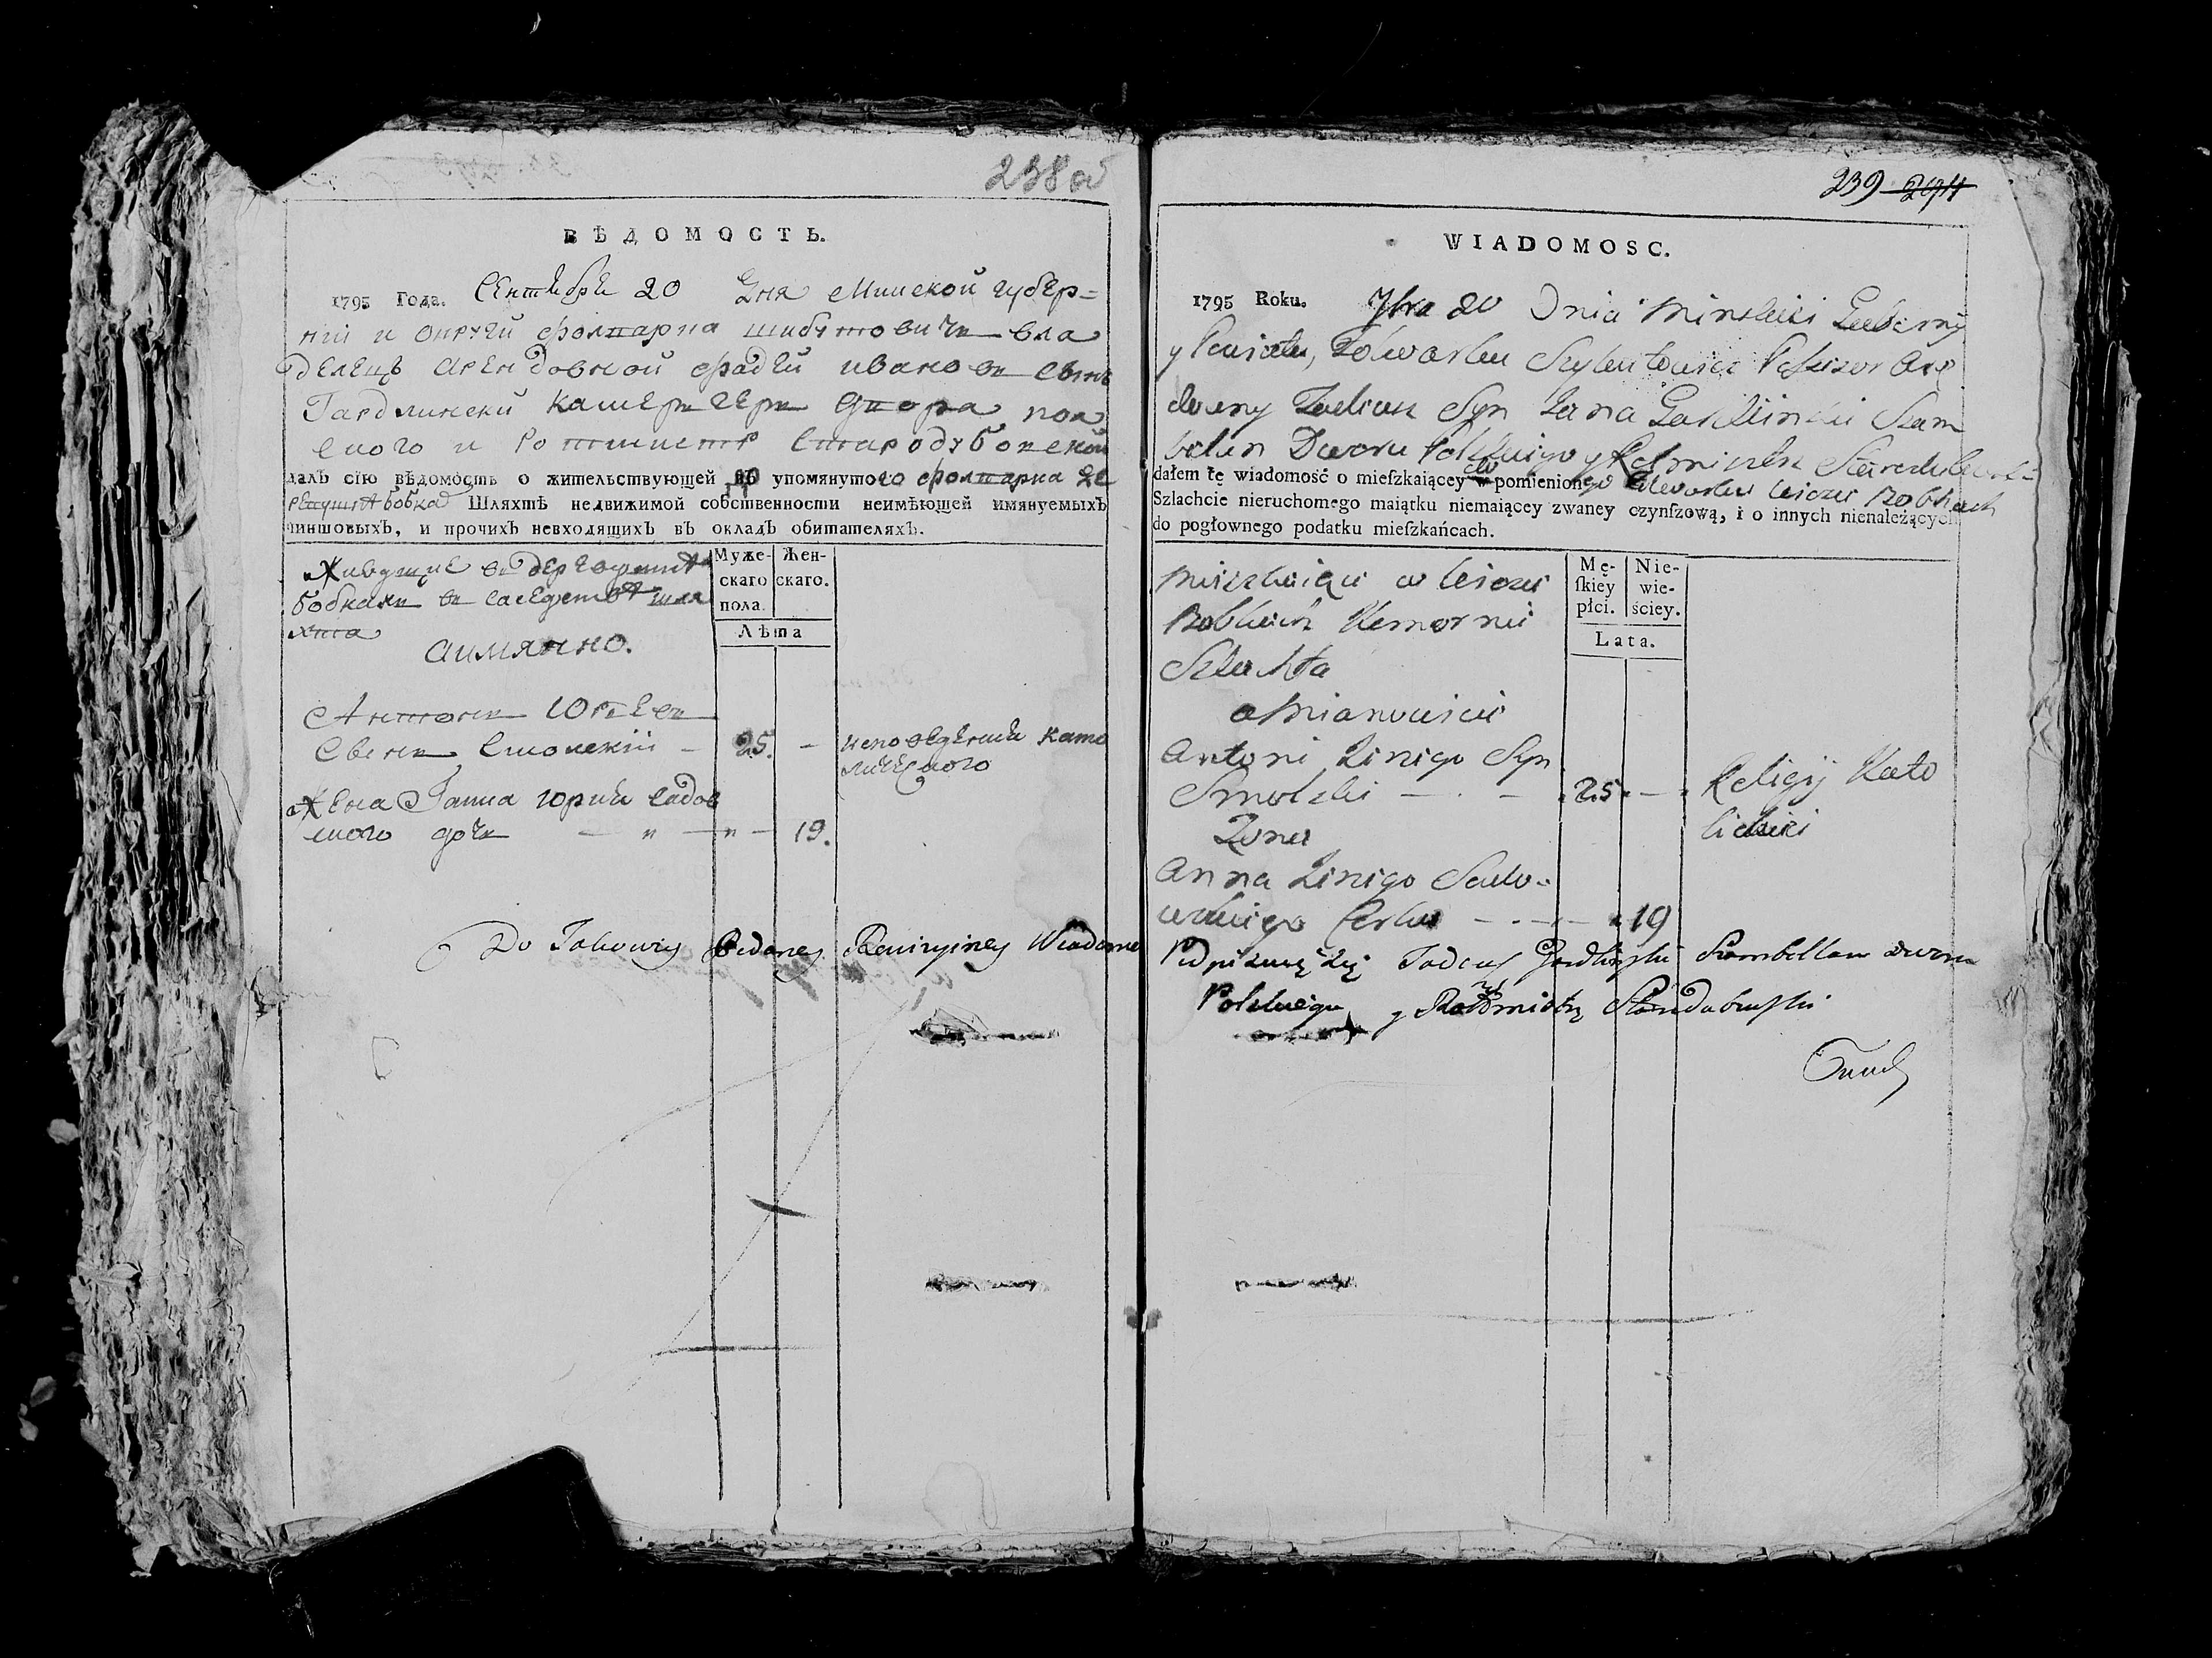 238 об
ВѢДОМОСТЬ.
1795 Года. Сентебри 20 Дня Минской губер=
нии и округи фолварка Шибутовичъ вла
делецъ арендовной фадей ивановъ сынъ
Гардлински камергеръ двора пол
ского и Ротмистр Стародубовской
далъ сїю вѣдомость о жительствующей въ упомянутого фолварка де
ревушкѣ бобка Шляхтѣ недвижимой собственности неимѣющей имянуемыхъ
чиншовыхъ, и прочихъ невходящихъ въ окладъ обитателяхъ.
Живущие въ деревушкѣ
бобкахъ въ соседствѣ шля
хта
аимянно.
Муже-скаго пола.
Жен-скаго.
Лѣта
Антонъ Юрьевъ
Свенъ Смолскїй – 25. – исповеденїи като
лического
Жена Ганна Юрїи садов
ского дочь – „ – „ – 19.
239 294
WIADOMOSC.
1795 Roku. 7bra 20 Dnia Minskiei Guberny
y Powiatu, Folwarku Szybutowicz Possesor Aręn
downy Tadeusz Syn Jana Gardliinski Szam
belan Dworu Polskiego y Rotmistrz Starodubowski
dałem tę wiadomość o mieſzkaiącey w pomienionego Folwarku wiosce Bobkach
Szlachcie nieruchomego maiątku niemaiącey zwaney czynſzową, i o innych nienależących
do pogłownego podatku mieſzkańcach.
Mieszkaiąca w wiosce
Bobkach Komorna
Szlachta
a Mianowicie
Mę-ſkiey płci.
Nie-wie-ściey.
Lata.
Antoni Jerzego Syn
Smolski – . – 25 . – Religij Kato
lickiei
Zona
Anna Jerzego Sado-
wskiego Corka – . – 19
Do Takowey Podaney Rewizyiney Wiadome
Podpisuię się Tadeusz Gardliński Szambellan dworu
Polskiego y Rotmistrz Starodubowski